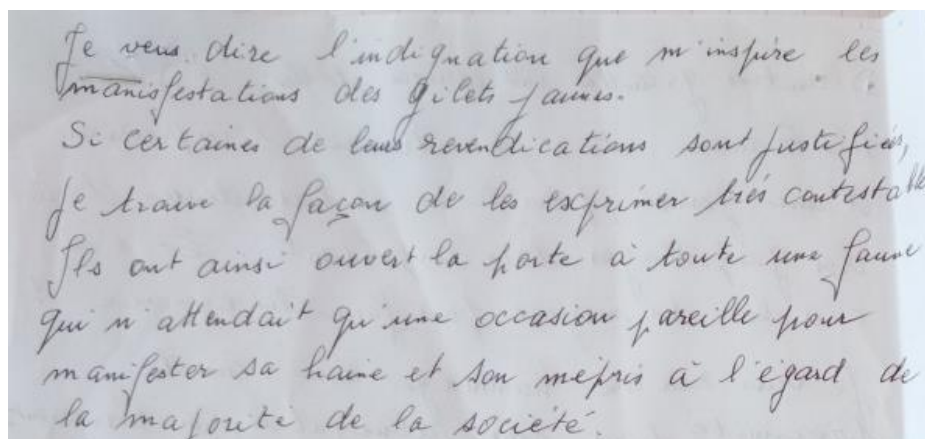 Je veux dire l'indignation que m'inspire les
manisfestations des gilets jaunes.
Si certaines de leurs revendications sont justifiées,
je trouve la façon de les exprimer très contestable
Ils ont ainsi ouvert la porte à toute une faune
qui n'attendait qu'une occasion pareille pour
manifester sa haine et son mépris à l'égard de
la majorité de la société.